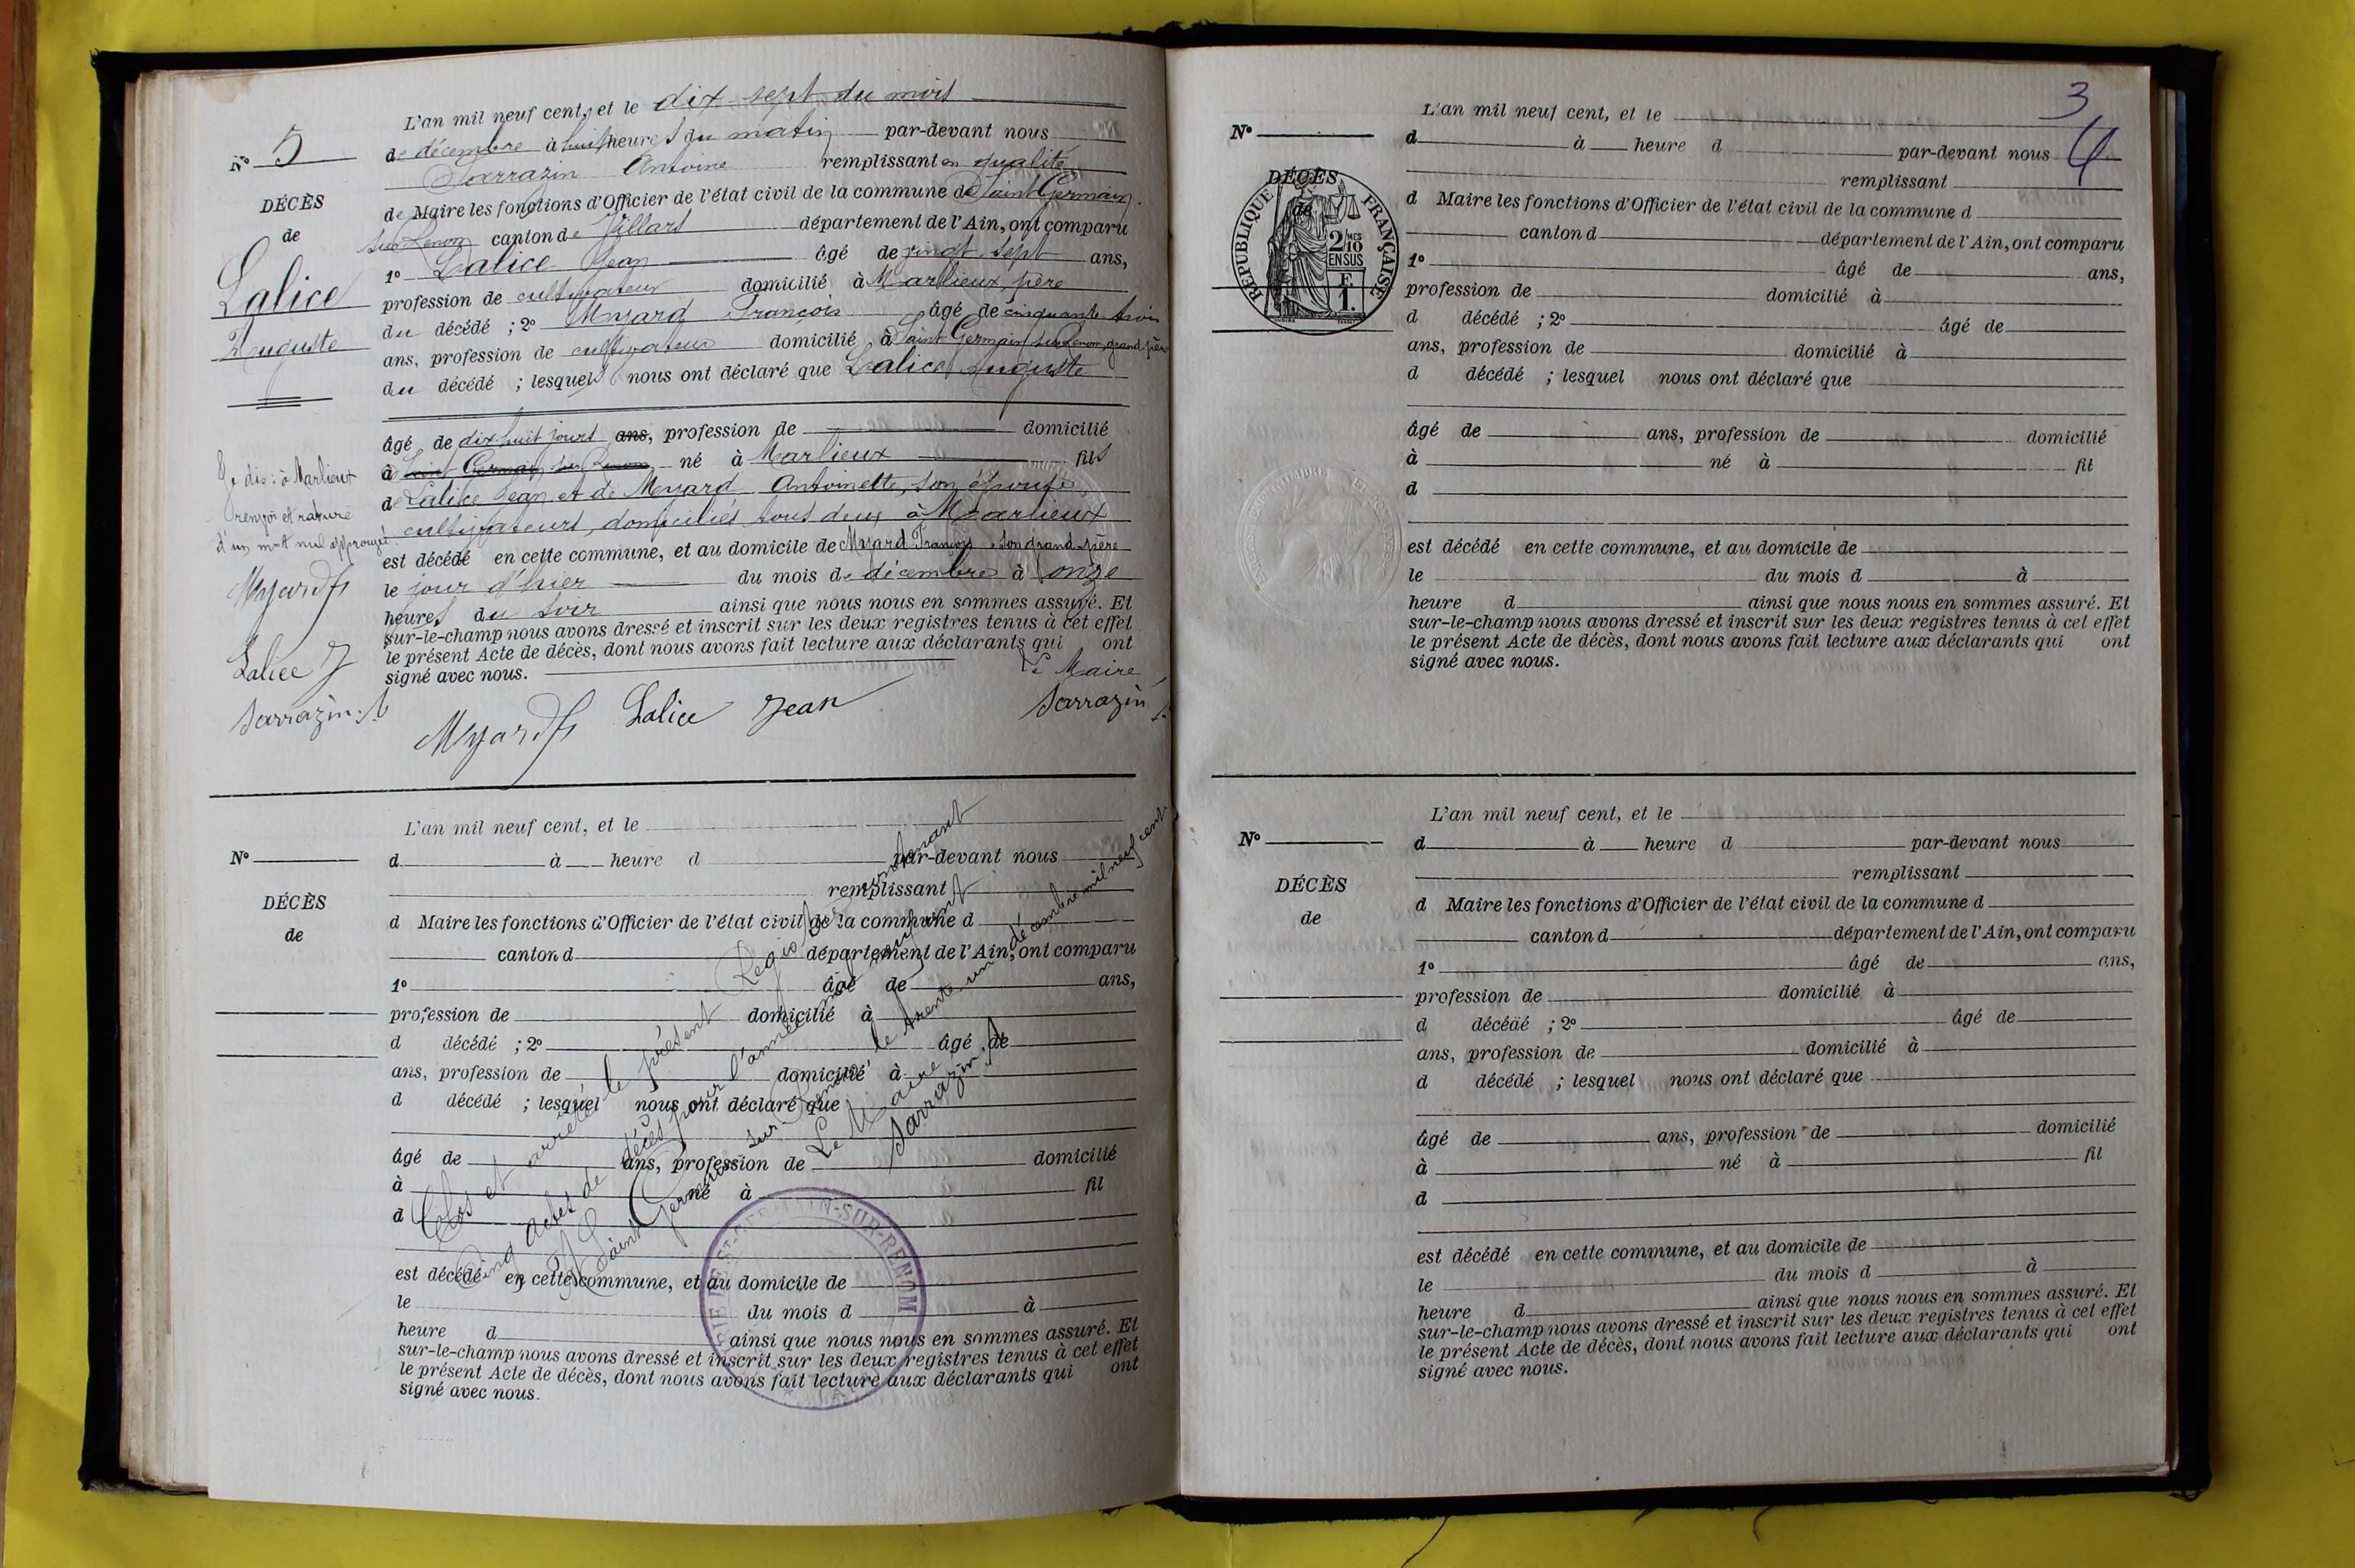 N° 5
DÉCÈS
de
Lalice
Auguste
L'an mil neuf cent, et le dix-sept du mois
de décembre à huit heures du matin par-devant nous
Sarrazin Antoine remplissant en qualité
de Maire les fonctions d'Officier de l'état civil de la commune de Saint Germain
sur Renon canton de Villars département de l'Ain, ont comparu
1° Lalice Jean âgé de vingt sept ans,
profession de cultivateur domicilié à Marlieux, père
du décédé ; 2° Myard François âgé de cinquante trois
ans, profession de cultivateur domicilié à Saint Germain sur Renon, grand-père
du décédé ; lesquels nous ont déclaré que Lalice Auguste
âgé de dix huit jours ans, profession de domicilié
à Saint Germain sur Renom né à Marlieux fils
de Lalice Jean et de Myard Antoinette, son épouse,
cultivateurs, domiciliés tous deux à Marlieux
est décédé en cette commune, et au domicile de Myard François, son grand-père
le jour d'hier du mois de décembre à onze
heures du soir ainsi que nous nous en sommes assuré. Et
sur-le-champ nous avons dressé et inscrit sur les deux registres tenus à cet effet
le présent Acte de décès, dont nous avons fait lecture aux déclarants qui ont
signé avec nous.
Le Maire
Myard f Lalice Jean Sarrazin A
Je dis : à Marlieux
renvoi et rature
d'un mot nul approuvé.
Myard f
Lalice J
Sarrazin. A
N°
DÉCÈS
de
L'an mil neuf cent, et le
d à heure d par-devant nous
remplissant
d Maire les fonctions d'Officier de l'état civil de la commune d
canton d département de l'Ain, ont comparu
1° âgé de ans,
profession de domicilié à
d décédé ; 2° âgé de
ans, profession de domicilié à
d décédé ; lesquel nous ont déclaré que
âgé de ans, profession de domicilié
à né à fil
d
est décédé en cette commune, et au domicile de
le du mois d à
heure d ainsi que nous nous en sommes assuré. Et
sur-le-champ nous avons dressé et inscrit sur les deux registres tenus à cet effet
le présent Acte de décès, dont nous avons fait lecture aux déclarants qui ont
signé avec nous.
Clos et arrêté le présent Registre contenant
Cinq actes de décès pour l'année mil neuf cent
A Saint Germain sur Renon le trente un décembre mil neuf cent
Le Maire
Sarrazin A
ST-GERMAIN-SUR-RENOM
3
4
N°
DÉCÈS
de
RÉPUBLIQUE FRANÇAISE
2/10 MES
EN SUS
F
1.
L'an mil neuf cent, et le
d à heure d par-devant nous
remplissant
d Maire les fonctions d'Officier de l'état civil de la commune d
canton d département de l'Ain, ont comparu
1° âgé de ans,
profession de domicilié à
d décédé ; 2° âgé de
ans, profession de domicilié à
d décédé ; lesquel nous ont déclaré que
âgé de ans, profession de domicilié
à né à fil
d
est décédé en cette commune, et au domicile de
le du mois d à
heure d ainsi que nous nous en sommes assuré. Et
sur-le-champ nous avons dressé et inscrit sur les deux registres tenus à cel effet
le présent Acte de décès, dont nous avons fait lecture aux déclarants qui ont
signé avec nous.
N°
DÉCÈS
de
L'an mil neuf cent, et le
d à heure d par-devant nous
remplissant
d Maire les fonctions d'Officier de l'état civil de la commune d
canton d département de l'Ain, ont comparu
1° âgé de ans,
profession de domicilié à
d décédé ; 2° âgé de
ans, profession de domicilié à
d décédé ; lesquel nous ont déclaré que
âgé de ans, profession de domicilié
à né à fil
d
est décédé en cette commune, et au domicile de
le du mois d à
heure d ainsi que nous nous en sommes assuré. Et
sur-le-champ nous avons dressé et inscrit sur les deux registres tenus à cet effet
le présent Acte de décès, dont nous avons fait lecture aux déclarants qui ont
signé avec nous.